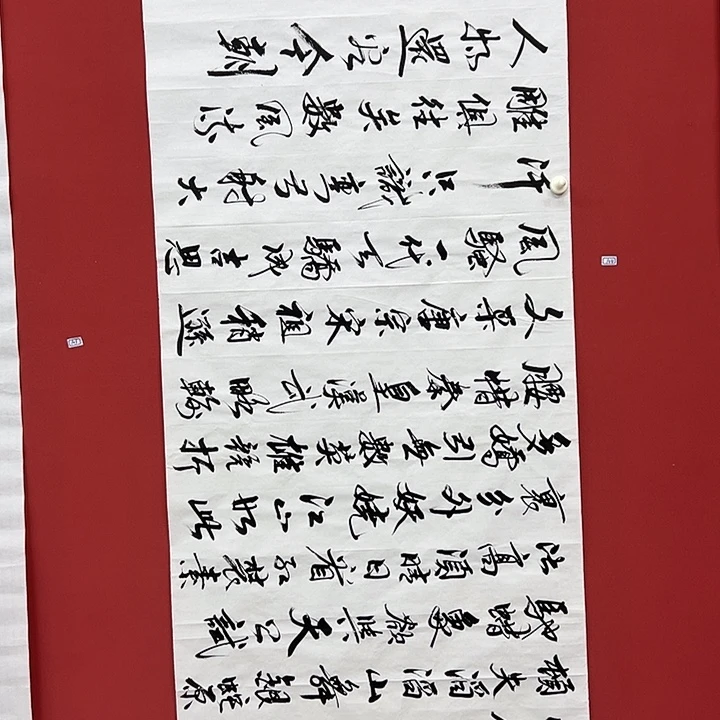 頓失滔滔山舞銀蛇原
馳蠟象欲與天公試
比高須晴日看紅裝素
裹分外妖嬈江山如此
多嬌引無數英雄競折
腰惜秦皇漢武略輸
文采唐宗宋祖稍遜
風騷一代天驕成吉思
汗只識彎弓射大
雕俱往矣數風流
人物還看今朝